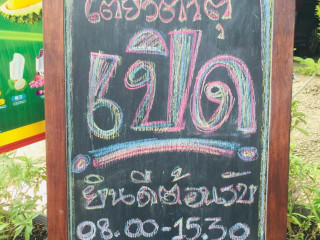 เปิด
ยินดีต้อนรับ
08.00-15.30